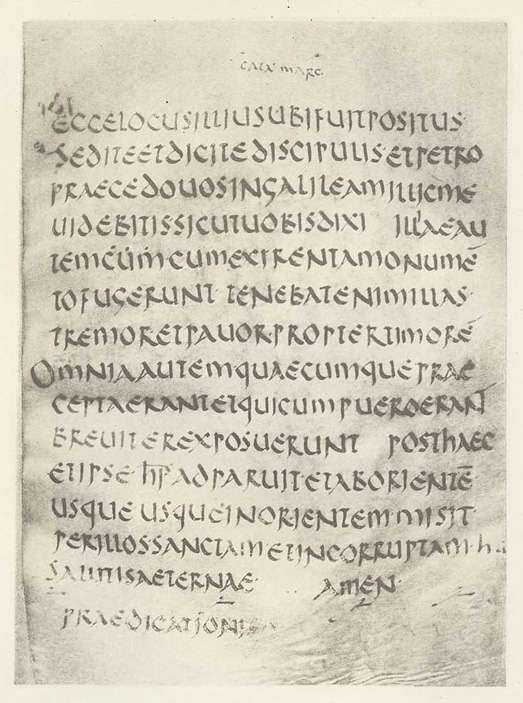 CATA MARC
ECCELOCUSILLIUSUBIFUITPOSITUS
SEDITEETDICITEDISCIPULISETPETRO
PRAECEDOUOSINGALILEAMILLICME
UIDEBITISSICUTUOBISDIXI ILLAEAU
TEMCUMCUMEXIRENTAMONUMĒ
TOFUGERUNT TENEBATENIMILLAS
TREMORETPAUORPROPTERTIMORĒ
OMNIAAUTEMQUAECUMQUEPRAE
CEPTAERANTETQUICUMPUEROERANT
BREUITEREXPOSUERUNT POSTHAEC
ETIPSE HIS ADPARUITETABORIENTĒ
USQUE USQUEINORIENTEM MISIT
PERILLOSSANCTAMETINCORRUPTAM·H
SALUTISAETERNAE· AMEN·
PRAEDICATIONIS